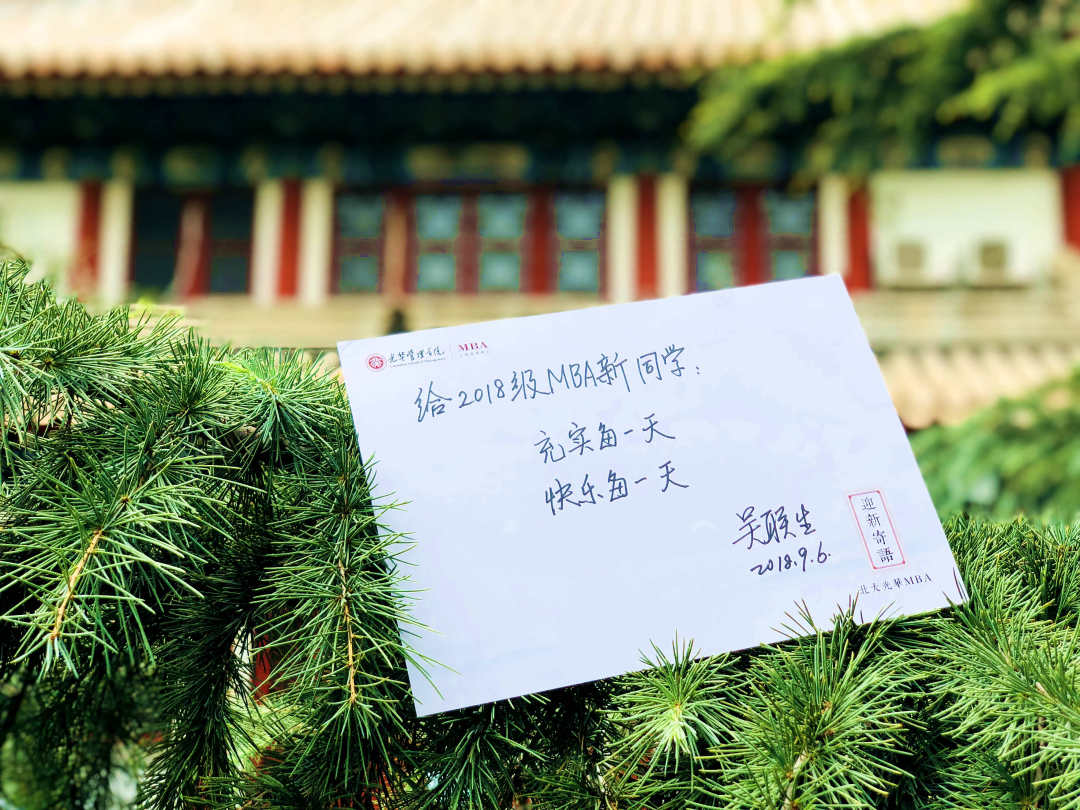 光华管理学院 MBA
给2018级MBA新同学：
充实每一天
快乐每一天
吴联生
2018.9.6.
迎新寄語
北大光華MBA